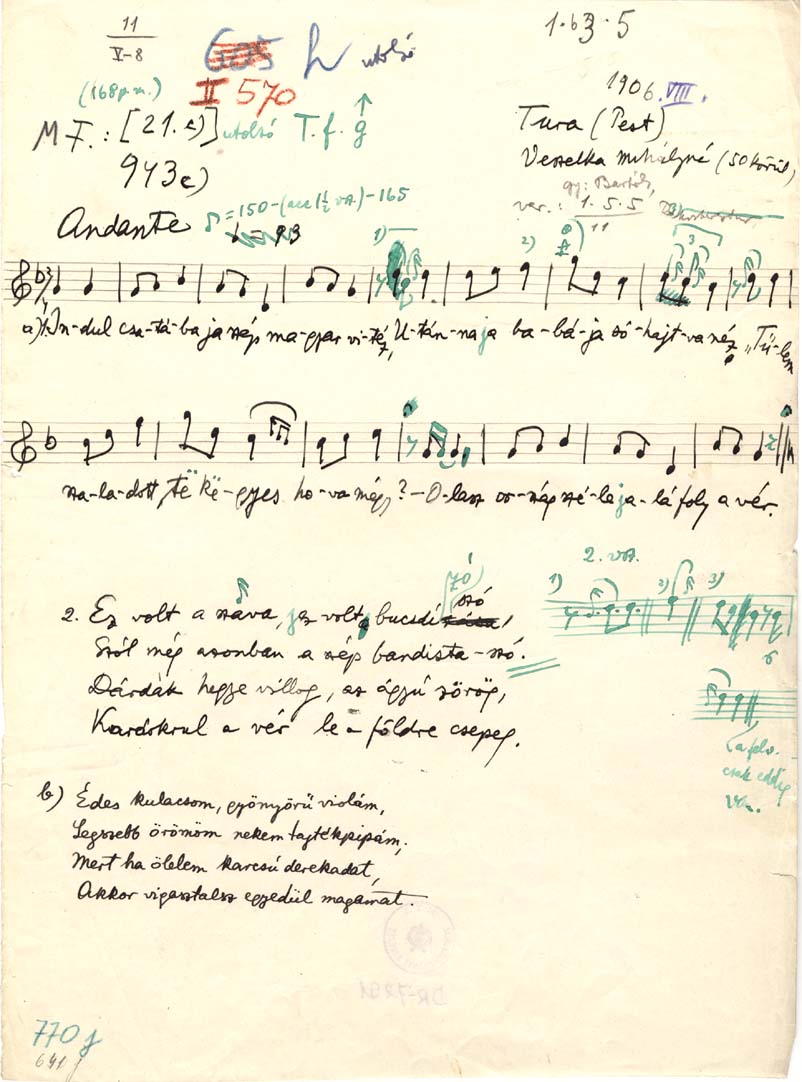 11
V-8
605 h utolsó
1.63.5
(168 p.m.)
II 570
1906. VIII.
M F.: [21. c)] utolsó T. f. g
Tura (Pest)
943 c)
Veszelka Mihályné (50 körül)
gy: Bartók,
var.: 1.5.5
11
Andante = 150-(acc 1½ vsz.)-165
= 93
1) 2) 3) 3
a) 1. In-dul csa-tá-ba ja szép ma-gyar vi-téz, U-tán-na ja ba-bá-ja só-hajt-va néz, „Tű-lem
sza-la-dott, të kë-gyes ho-va mégy? - O-lasz or-szág szé-le ja-lá foly a vér.
2. vsz.
2. Ez volt a szava, jaz volt a bucsúzó szó
1) 2) 3)
Szól még azonban a szép bandista-szó.
Dárdák hegye villog, az ágyú zörög,
Kardokrul a vér le a földre csepeg.
(a felv.
csak eddig
van.
b) Édes kulacsom, gyönyörű violám,
Legszebb örömöm nekem tajtékpipám,
Mert ha ölelem karcsú derekadat,
Akkor vigasztalsz egyedül magamat.
DR-7291
770 j
641 j